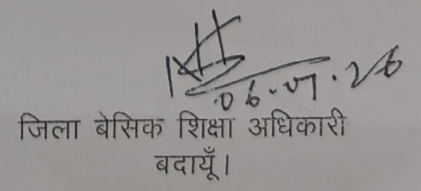 06.07.26
जिला बेसिक शिक्षा अधिकारी
बदायूँ।